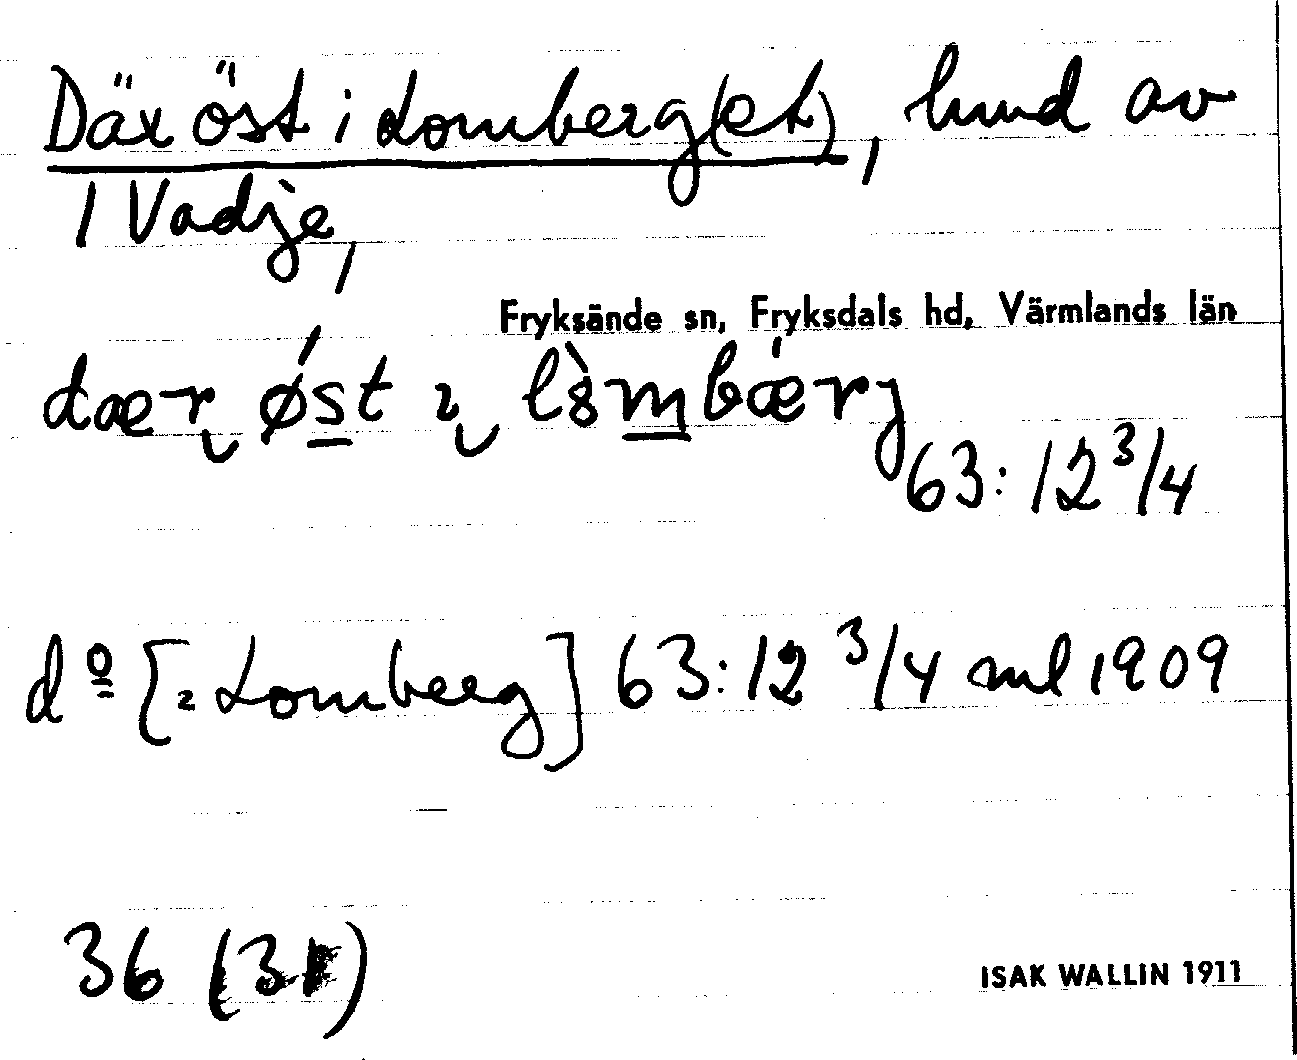 Där öst i Lomberg(et), hmd av
1 Vadje,
Fryksände sn, Fryksdals hd, Värmlands län
dær øst ı lòmbærj
63:12 3/4
dº [= Lomberg] 63:12 3/4 ml 1909
36 (31)
ISAK WALLIN 1911